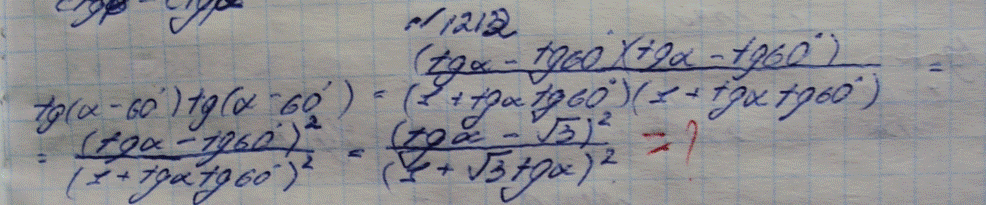 ctgβ - ctgα
N 1212
tg(α-60°)tg(α-60°) = (tgα - tg60°)(tgα - tg60°) / (1 + tgα tg60°)(1 + tgα tg60°) =
= (tgα - tg60°)² / (1 + tgα tg60°)² = (tgα - √3)² / (1 + √3 tgα)² = ?